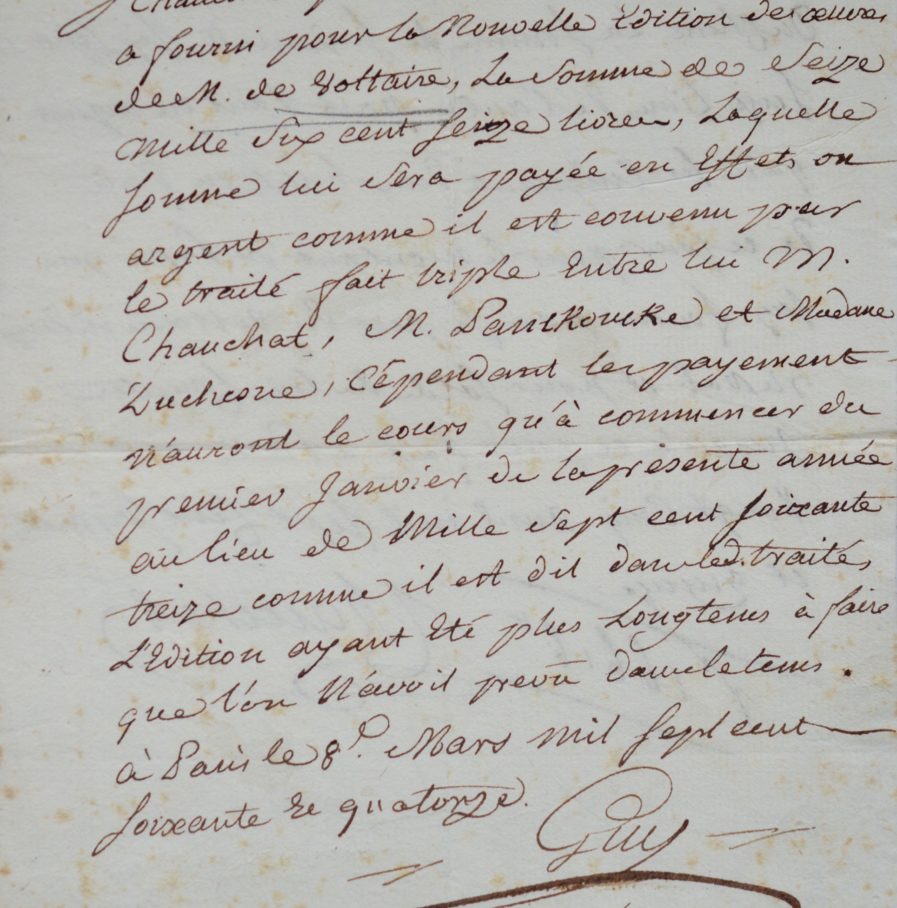 a fourni pour la Nouvelle Edition des œuvres
de M. de Voltaire, La Somme de Seize
Mille Six cent Seize livres, Laquelle
Somme lui sera payée en Effets ou
argent comme il est convenu par
le traité fait triple Entre lui M.
Chauchat, M. Panckoucke et Madame
Duchesne, Cépendant les payement
n'auront le cours qu'à commencer du
premier Janvier de la présente année
au lieu de Mille Sept cent Soixante
treize comme il est dit dans led. traité,
L'Edition ayant Eté plus Longtems à faire
que l'on N'avoit prevû dans le tems.
à Paris le 8.ᵈ Mars mil Sept cent
Soixante Et quatorze.
Guy